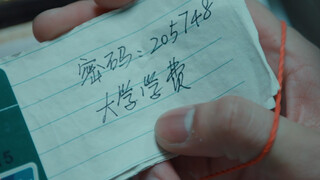 密码：205748
大学学费
5